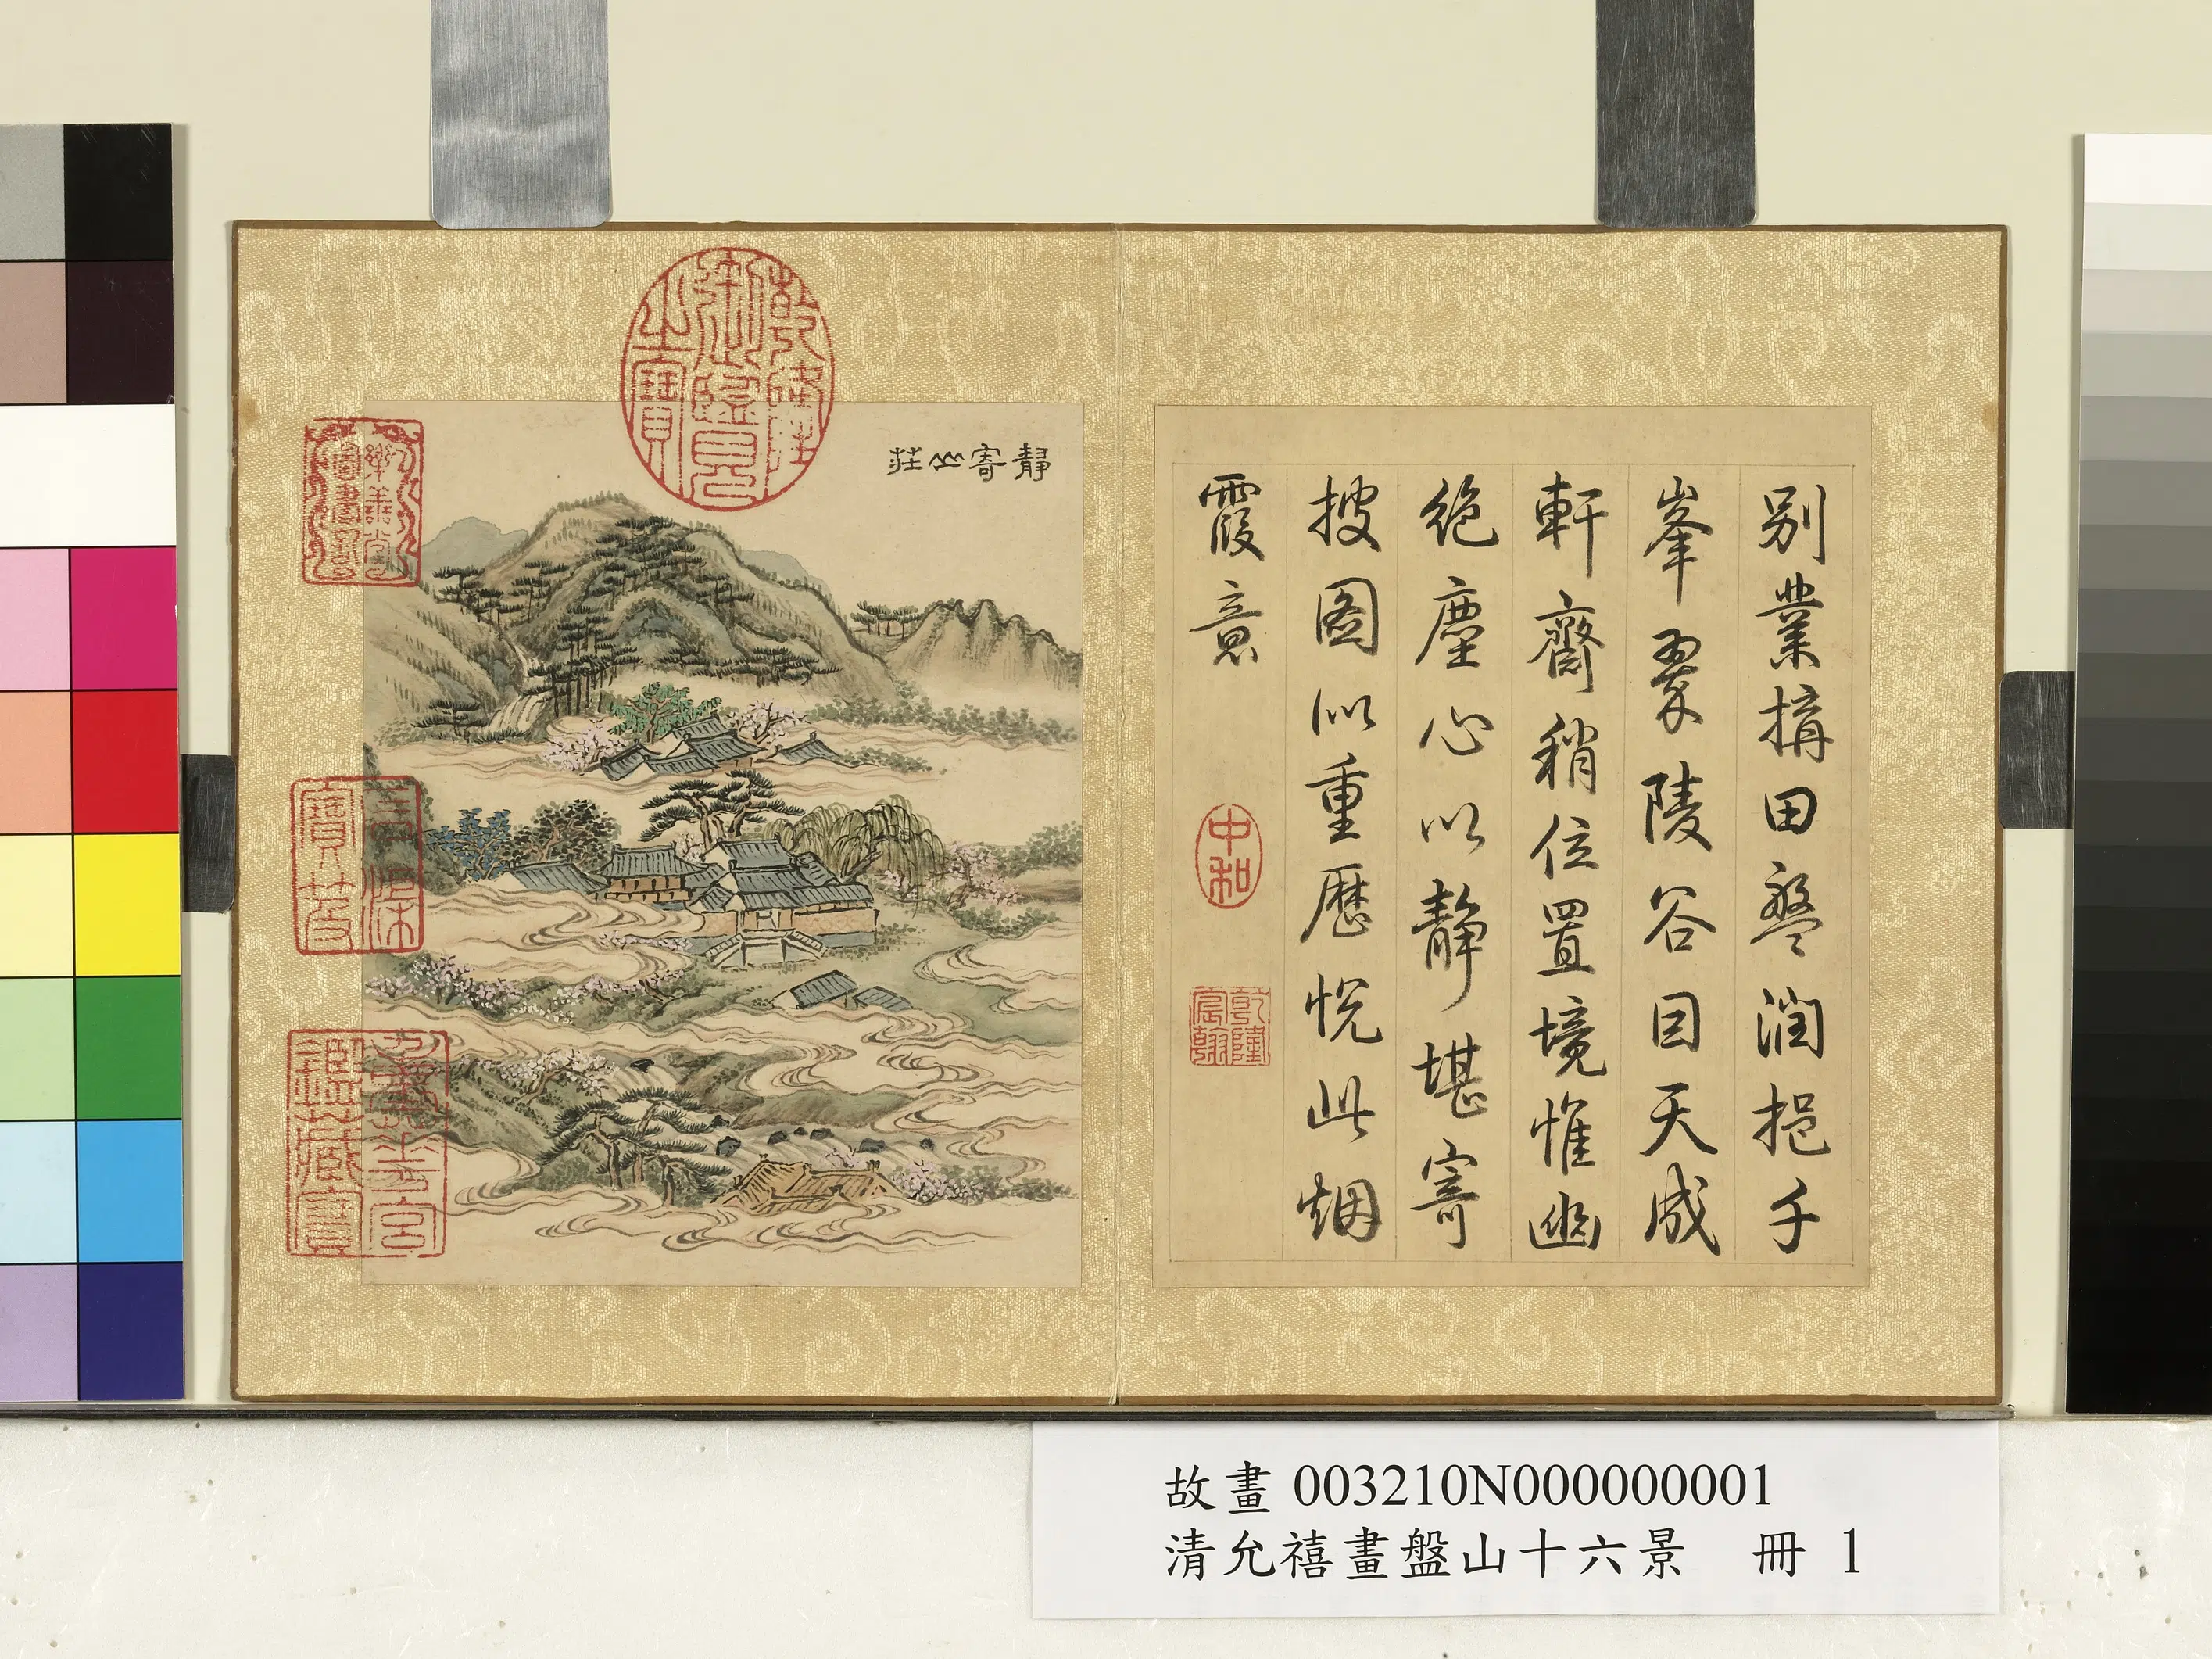 别業搆田盤澗挹千
峯翠陵谷因天成
軒齋稍位置境惟幽
絶塵心以靜堪寄
披圖似重歷怳此烟
霞意
中和
乾隆宸翰
靜寄山莊
乾隆御覽之寶
樂善堂圖書記
石渠寶笈
重華宮鑑藏寶
故畫 003210N000000001
清允禧畫盤山十六景 冊 1